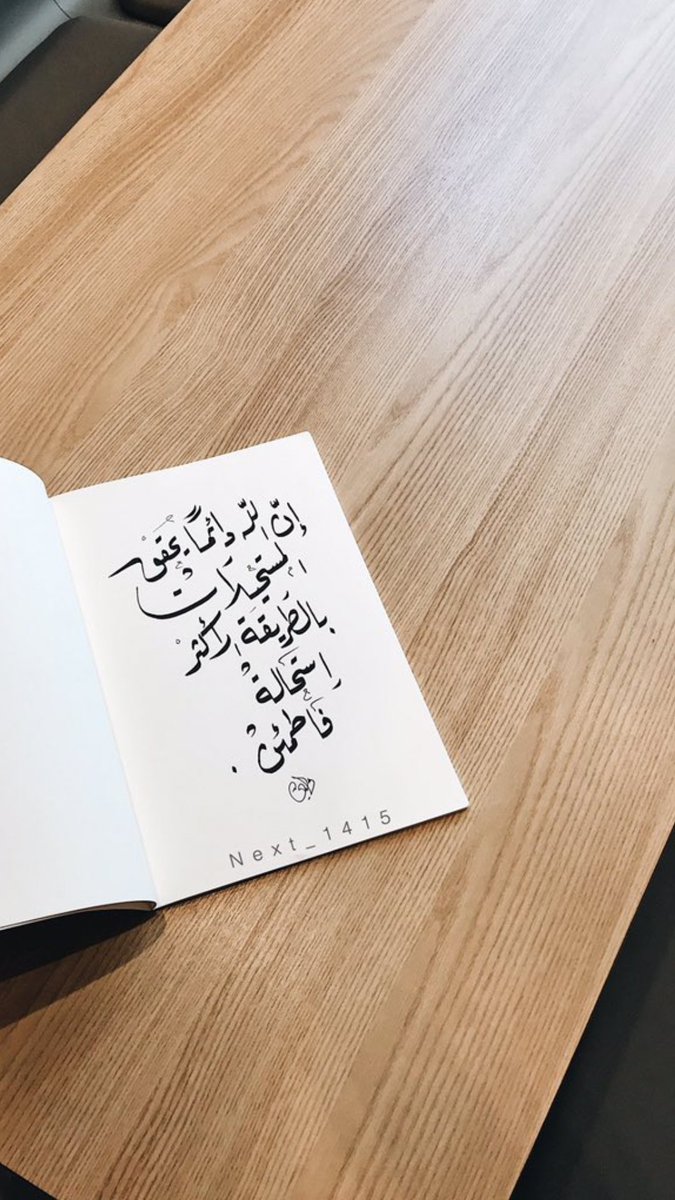 إنّ اللّه دائماً يحقق
المستحيلات
بالطريقة الأكثر
إستحالة
فأطمئن .
Next_1415